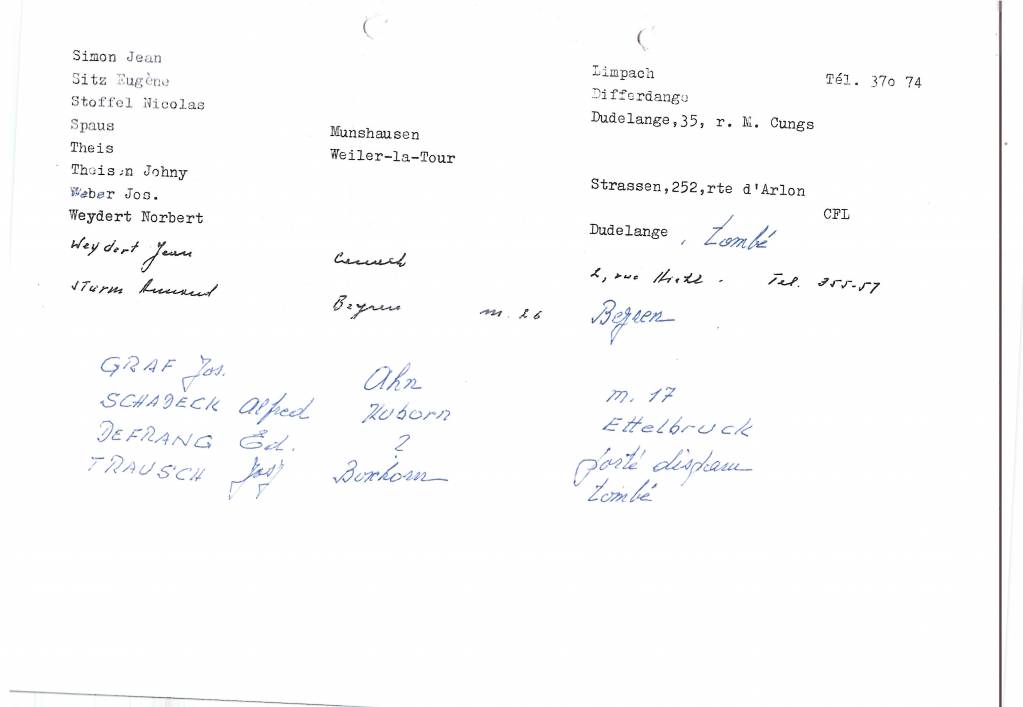 Simon Jean Limpach Tél. 370 74
Sitz Eugène Differdange
Stoffel Nicolas Dudelange,35, r. M. Cungs
Spaus Munshausen
Theis Weiler-la-Tour
Theisen Johny Strassen,252,rte d'Arlon
Weber Jos. CFL
Weydert Norbert Dudelange, tombé
Weydert Jean 2, rue Tel. 355-57
Sturm Armand Beyren m. 26 Beyren
GRAF Jos. Ahn m. 17
SCHADECK Alfred Huborn Ettelbruck
DEFRANG Ed. ? porté disparu
TRAUSCH Josy Boxhorn tombé